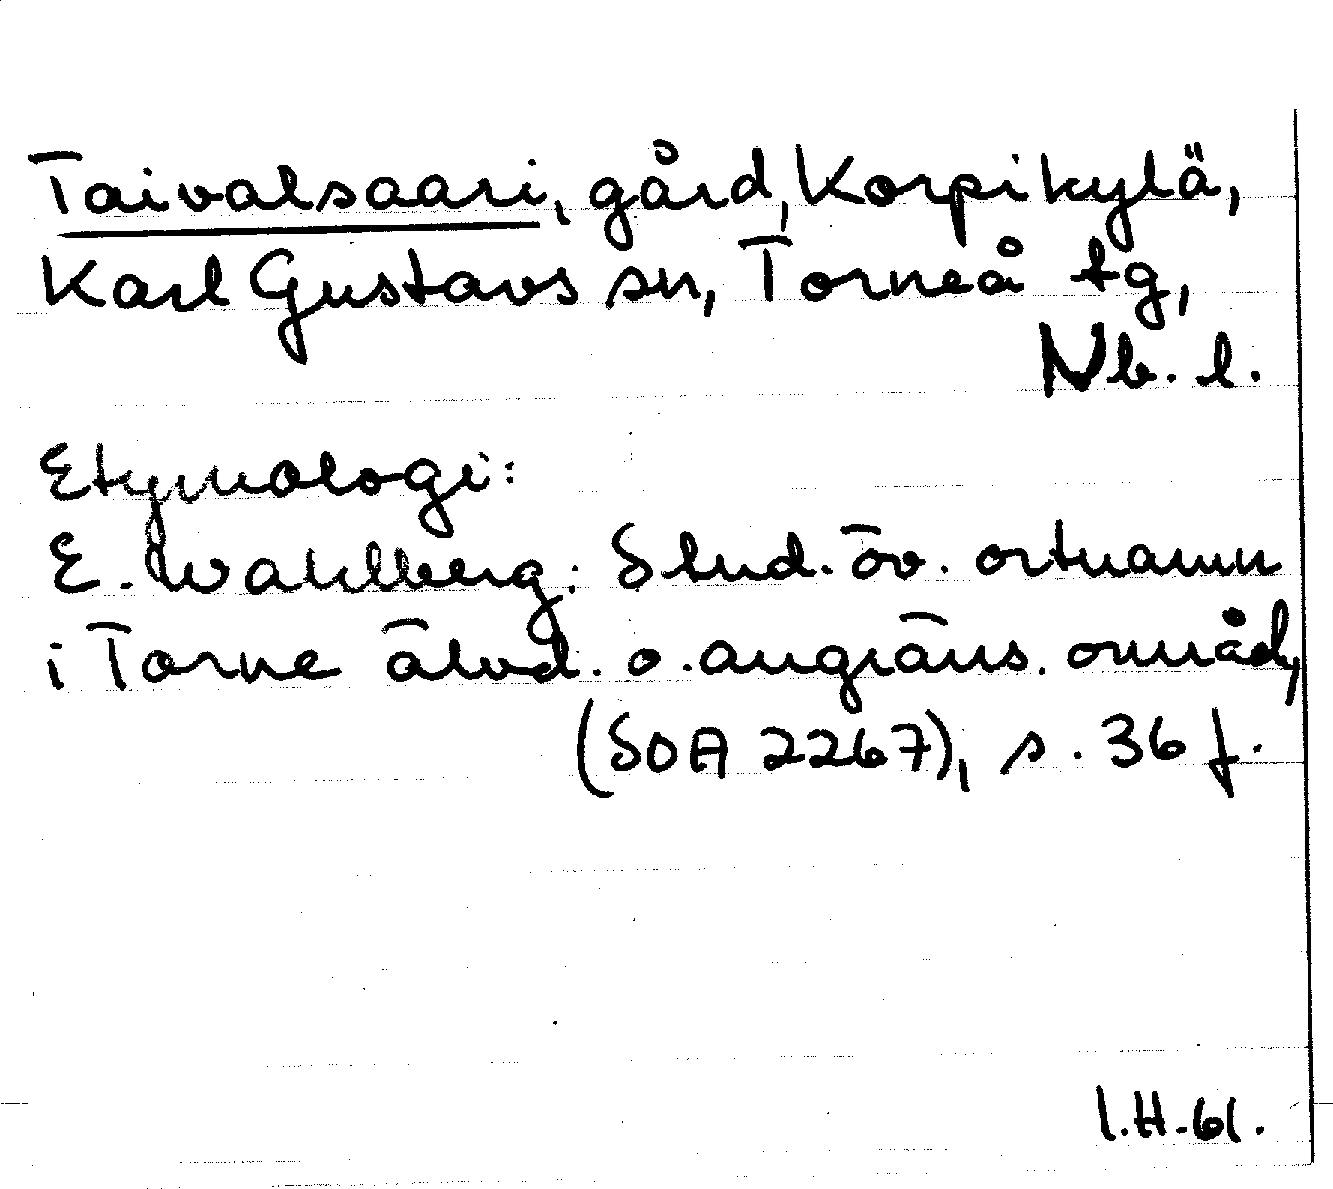 Taivalsaari, gård, Korpikylä,
Karl Gustavs sn, Torneå tg,
Nb. l.
Etymologi:
E. Wahlberg: Stud. öv. ortnamn
i Torne älvd. o. angräns. områd,
(SOA 2267), s. 36 f.
I.H.-61.